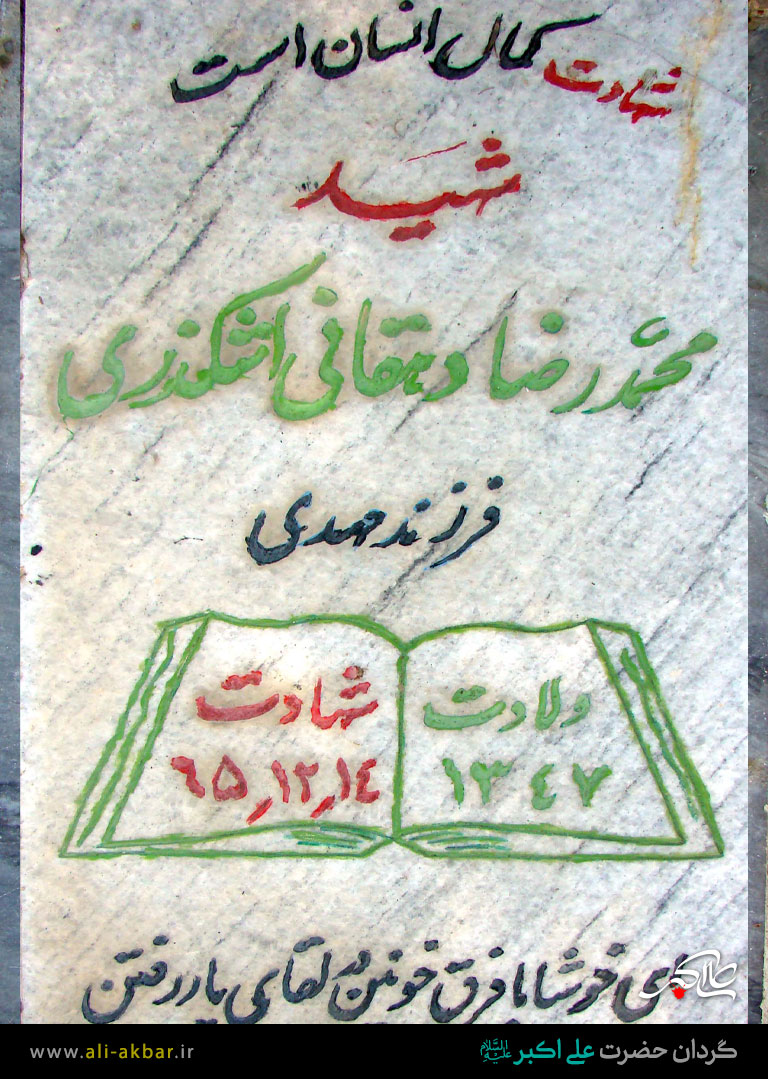 شهادت کمال انسان است
شهید
محمّد رضا دهقانی اشکذری
فرزند مهدی
ولادت
۱۳۴۷
شهادت
۶۵٫۱۲٫۱۴
ای خوشا با فرق خونین در لقای یار رفتن
علی اکبر
گردان حضرت علی اکبر علیه السلام
www.ali-akbar.ir